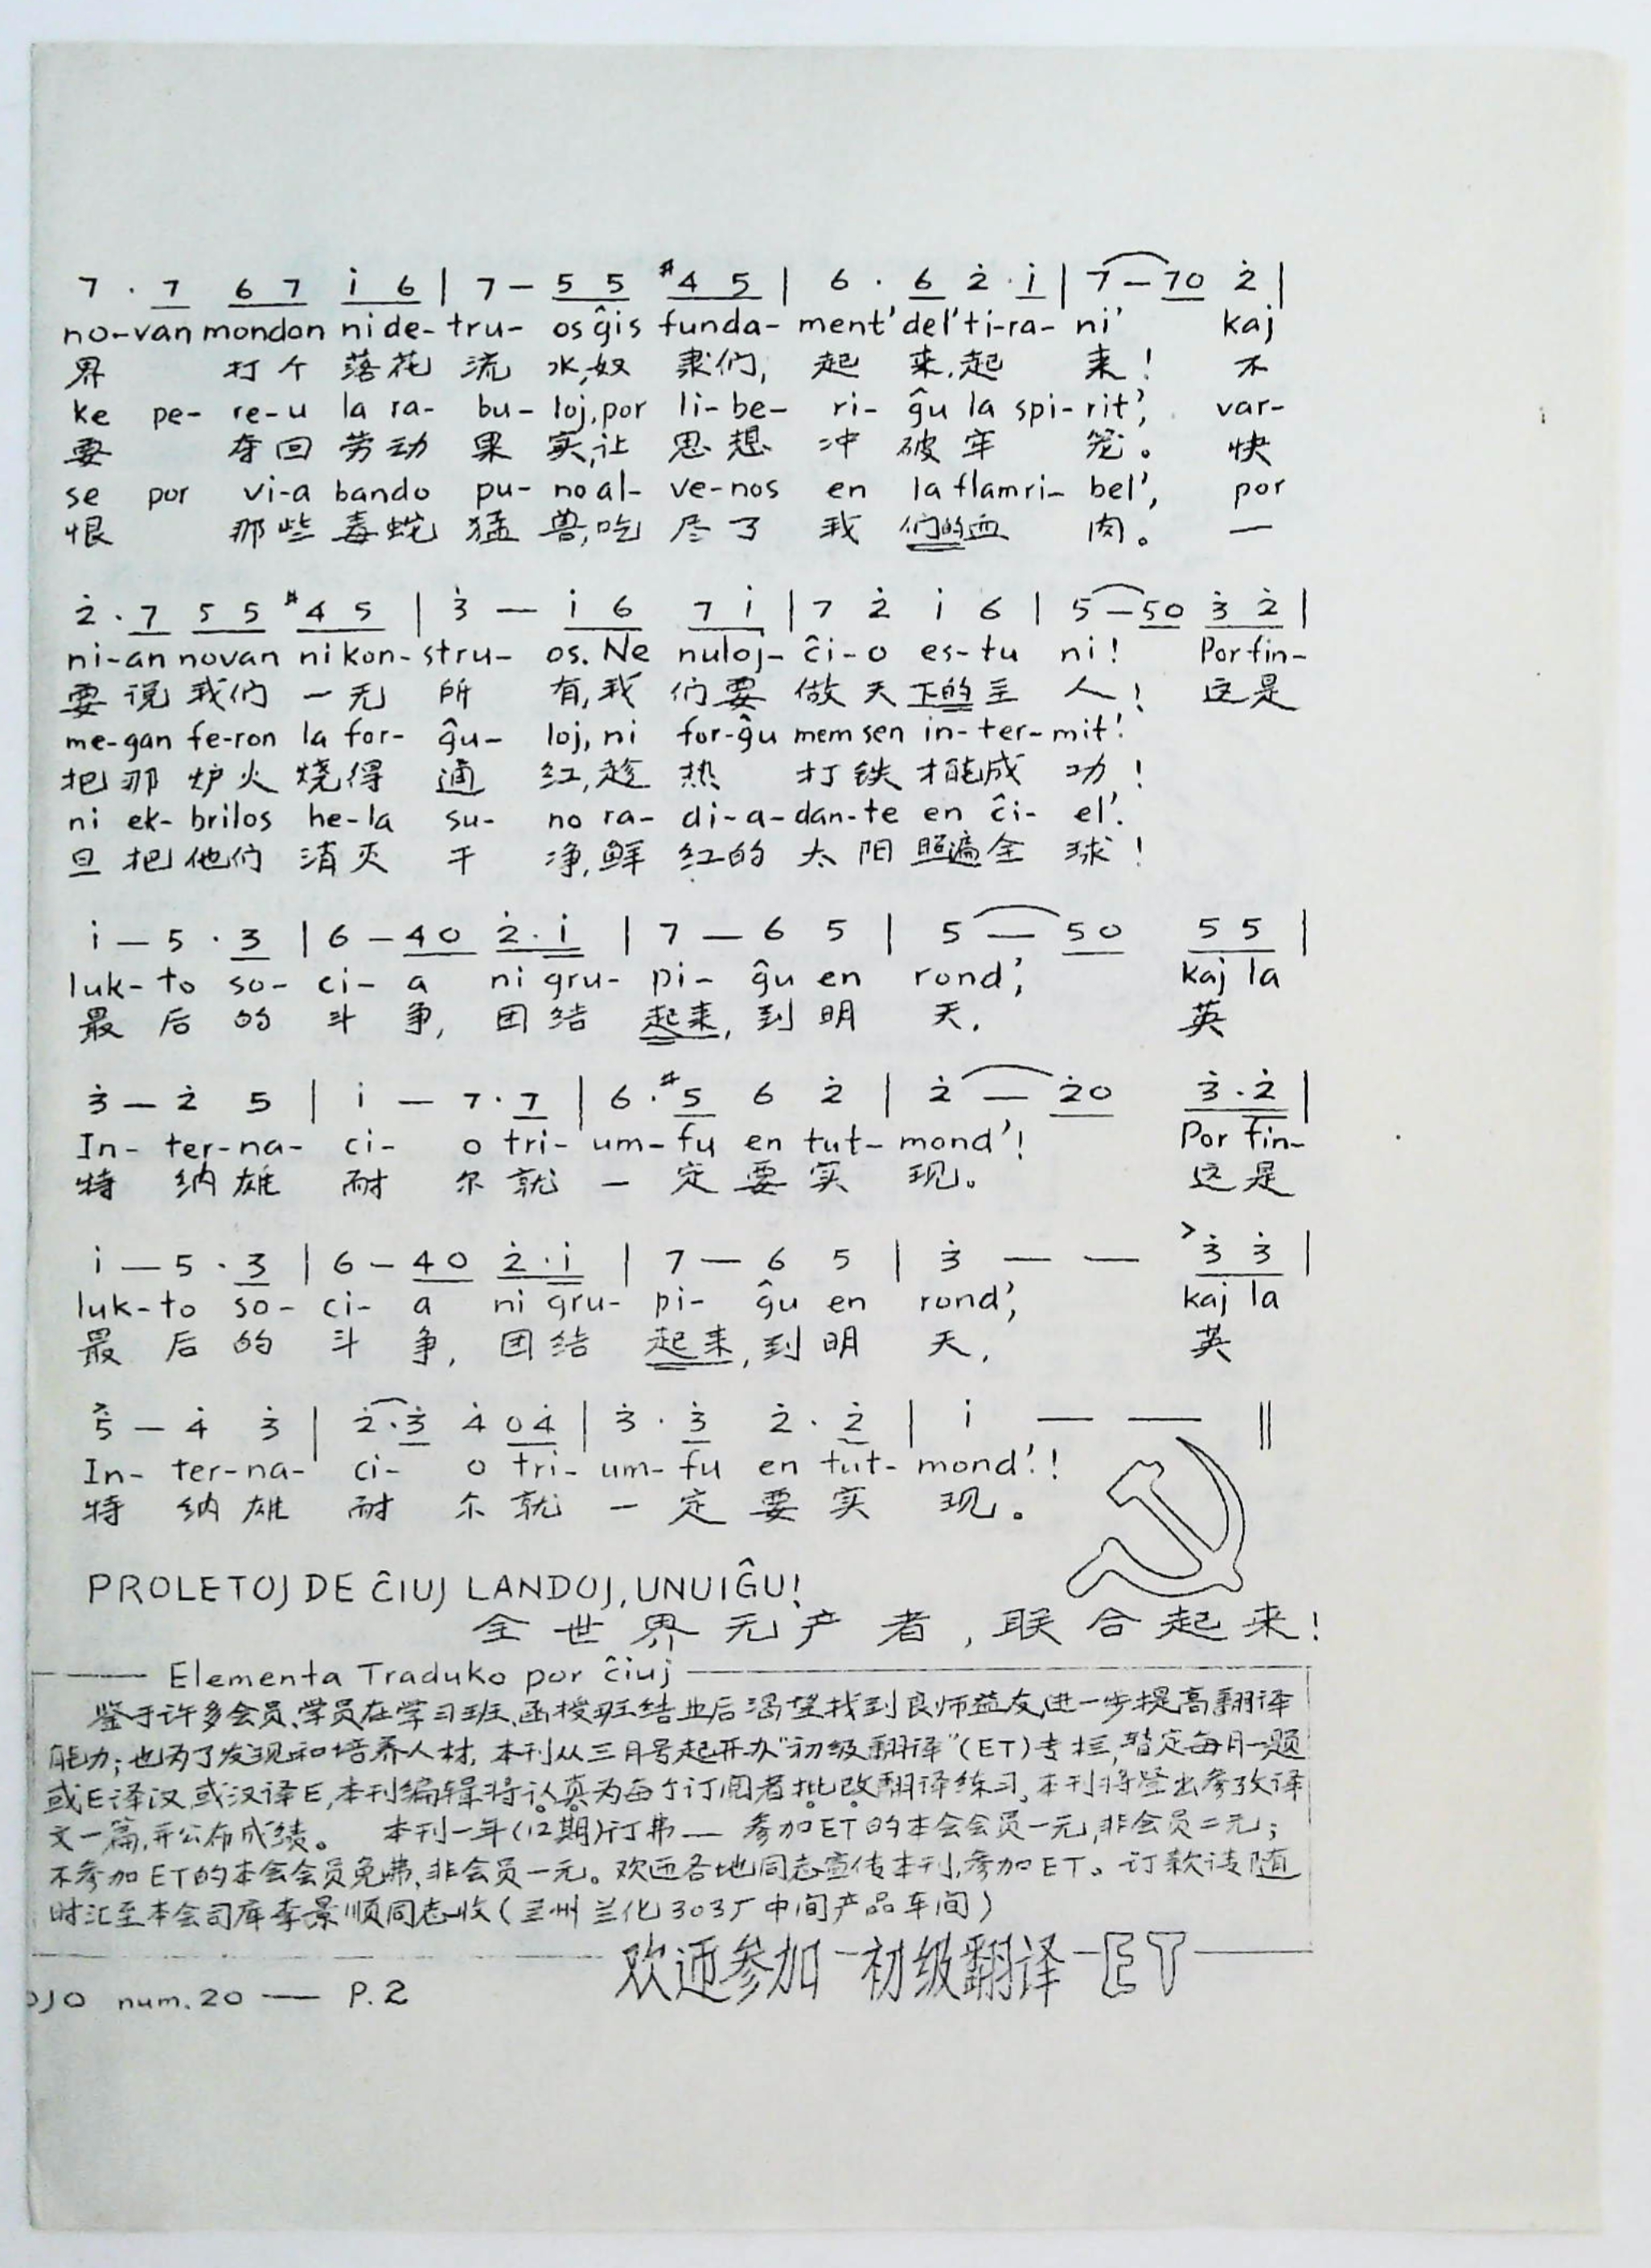 7 · 7 6 7 i 6 | 7 — 5 5 #4 5 | 6 · 6 2 · i | 7 — 7 0 2 |
no-van mondon ni de-tru- os ĝis funda- ment' del' ti-ra- ni' kaj
界 打个落花流水,奴隶们,起来,起来! 不
ke pe- re-u la ra- bu- loj, por li-be- ri- ĝu la spi-rit', var-
要 夺回劳动果实,让思想冲破牢笼。 快
se por vi-a bando pu- no al- ve-nos en la flam ri- bel', por
恨 那些毒蛇猛兽,吃尽了我们的血肉。 一
2 · 7 5 5 #4 5 | 3 — i 6 7 i | 7 2 i 6 | 5 — 5 0 3 2 |
ni-an novan ni kon-stru- os. Ne nuloj- ĉi-o es-tu ni! Por fin-
要说我们一无所有,我们要做天下的主人! 这是
me-gan fe-ron la for- ĝu- loj, ni for-ĝu mem sen in-ter-mit'!
把那炉火烧得通红,趁热 打铁才能成功!
ni ek- brilos he-la su- no ra- di-a-dan-te en ĉi- el'.
旦把他们消灭干净,鲜红的太阳照遍全球!
i — 5 · 3 | 6 — 4 0 2 · i | 7 — 6 5 | 5 — 5 0 5 5 |
luk-to so- ci- a ni gru- pi- ĝu en rond', kaj la
最后的斗争,团结起来,到明天, 英
3 — 2 5 | i — 7 · 7 | 6 · #5 6 2 | 2 — 2 0 3 · 2 |
In- ter-na- ci- o tri- um-fu en tut- mond'! Por fin-
特纳雄耐尔就一定要实现。 这是
i — 5 · 3 | 6 — 4 0 2 · i | 7 — 6 5 | 3 — — > 3 3 |
luk-to so- ci- a ni gru- pi- ĝu en rond', kaj la
最后的斗争,团结起来,到明天, 英
> 5 — 4 3 | 2 · 3 4 0 4 | 3 · 3 2 · 2 | i — — ‖
In- ter-na- ci- o tri- um-fu en tut- mond'!
特纳雄耐尔就一定要实现。
PROLETOJ DE ĈIUJ LANDOJ, UNUIĜU!
全世界无产者,联合起来!
Elementa Traduko por ĉiuj
鉴于许多会员、学员在学习班、函授班结业后渴望找到良师益友,进一步提高翻译
能力;也为了发现和培养人材,本刊从三月号起开办"初级翻译"(ET)专栏,暂定每月一题
或E译汉,或汉译E,本刊编辑将认真为每个订阅者批改翻译练习,本刊将登出参考译
文一篇,并公布成绩。 本刊一年(12期)订费— 参加ET的本会会员一元,非会员二元;
不参加ET的本会会员免费,非会员一元。欢迎各地同志宣传本刊,参加ET。订款请随
时汇至本会司库李景顺同志收(兰州兰化303厂中间产品车间)
欢迎参加-初级翻译-ET
OJO num.20 — P.2